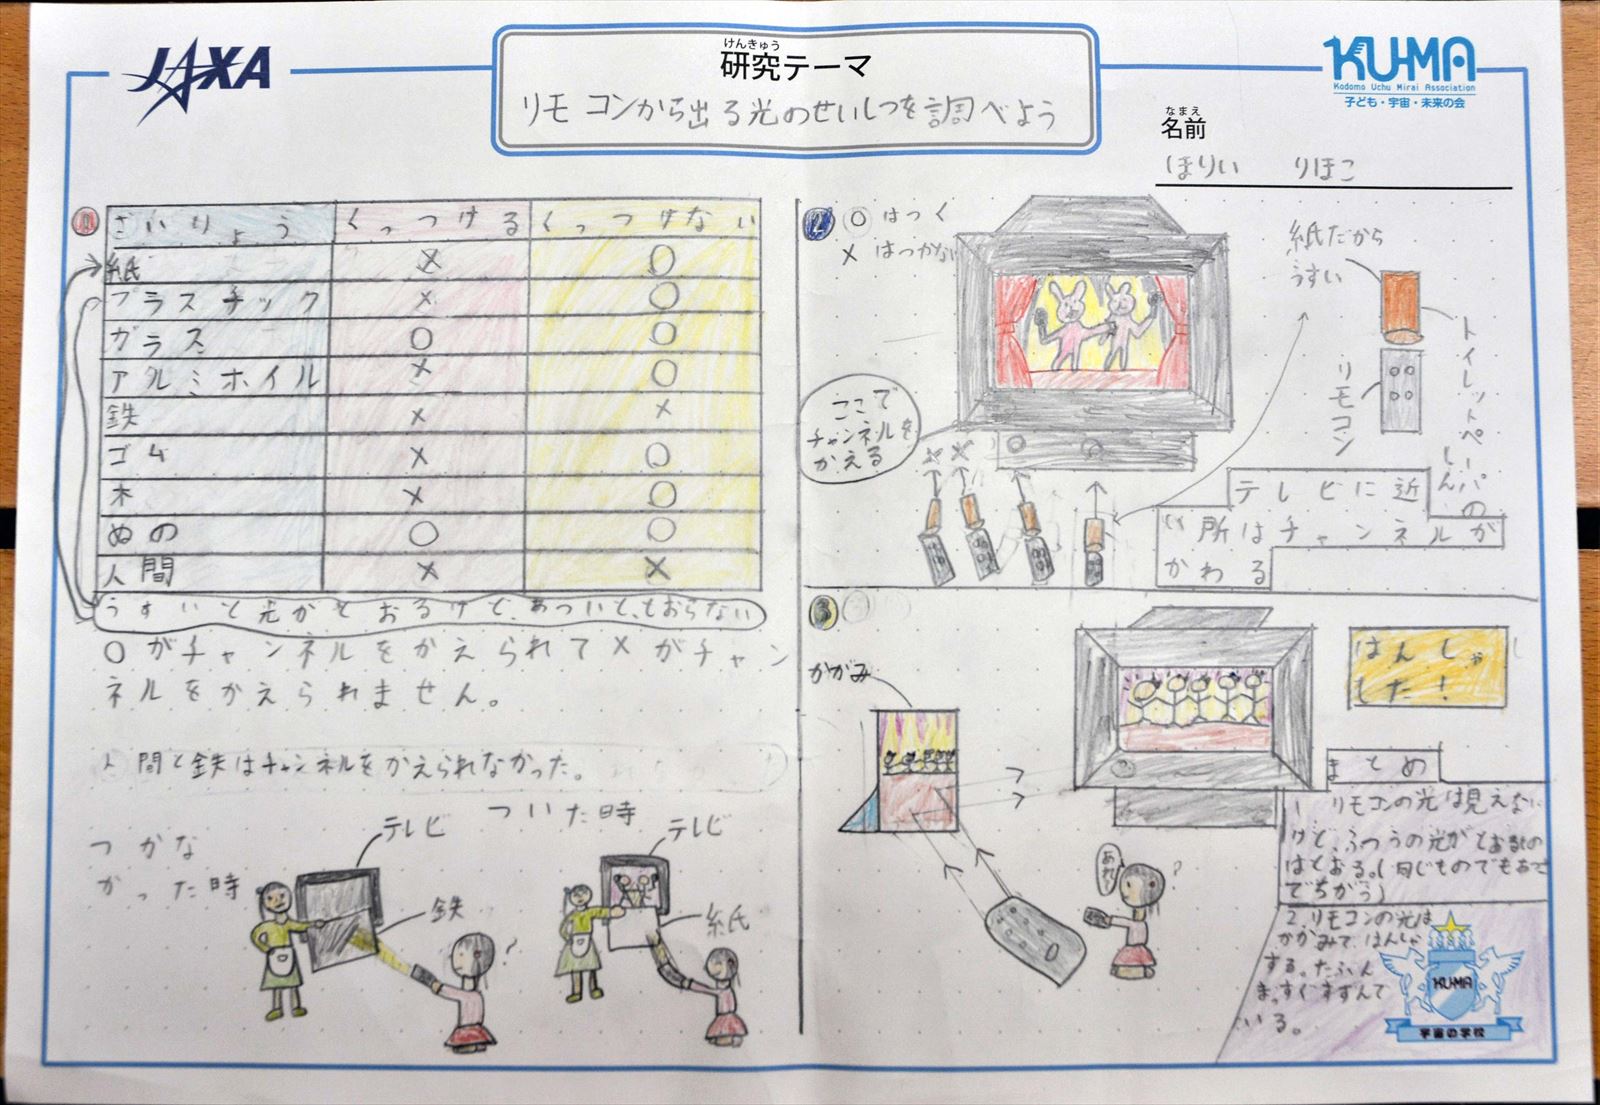 JAXA
けんきゅう
研究テーマ
リモコンから出る光のせいしつを調べよう
KU-MA
Kodomo Uchu Mirai Association
子ども・宇宙・未来の会
なまえ
名前
ほりい りほこ
1
ざいりょう くっつける くっつけない
紙 × ○
プラスチック × ○
ガラス ○ ○
アルミホイル × ○
鉄 × ×
ゴム × ○
木 × ○
ぬの ○ ○
人間 × ×
うすいと光がとおるけど、あついと、とおらない
○がチャンネルをかえられて×がチャン
ネルをかえられません。
人間と鉄はチャンネルをかえられなかった。
つかな
かった時
テレビ
鉄
?
ついた時
テレビ
紙
2
○ はつく
× はつかない
ここで
チャンネルを
かえる
× ×
紙だから
うすい
トイレットペーパーの
しん
リモコン
テレビに近
い所はチャンネルが
かわる
3
かがみ
はんしゃ
した!
あれ
?
まとめ
1 リモコンの光は見えない
けど、ふつうの光がとおるもの
はとおる。(同じものでもあつさ
でちがう)
2.リモコンの光は
かがみで、はんしゃ
する。たぶん
まっすぐすすんで
いる。
KU-MA
宇宙の学校